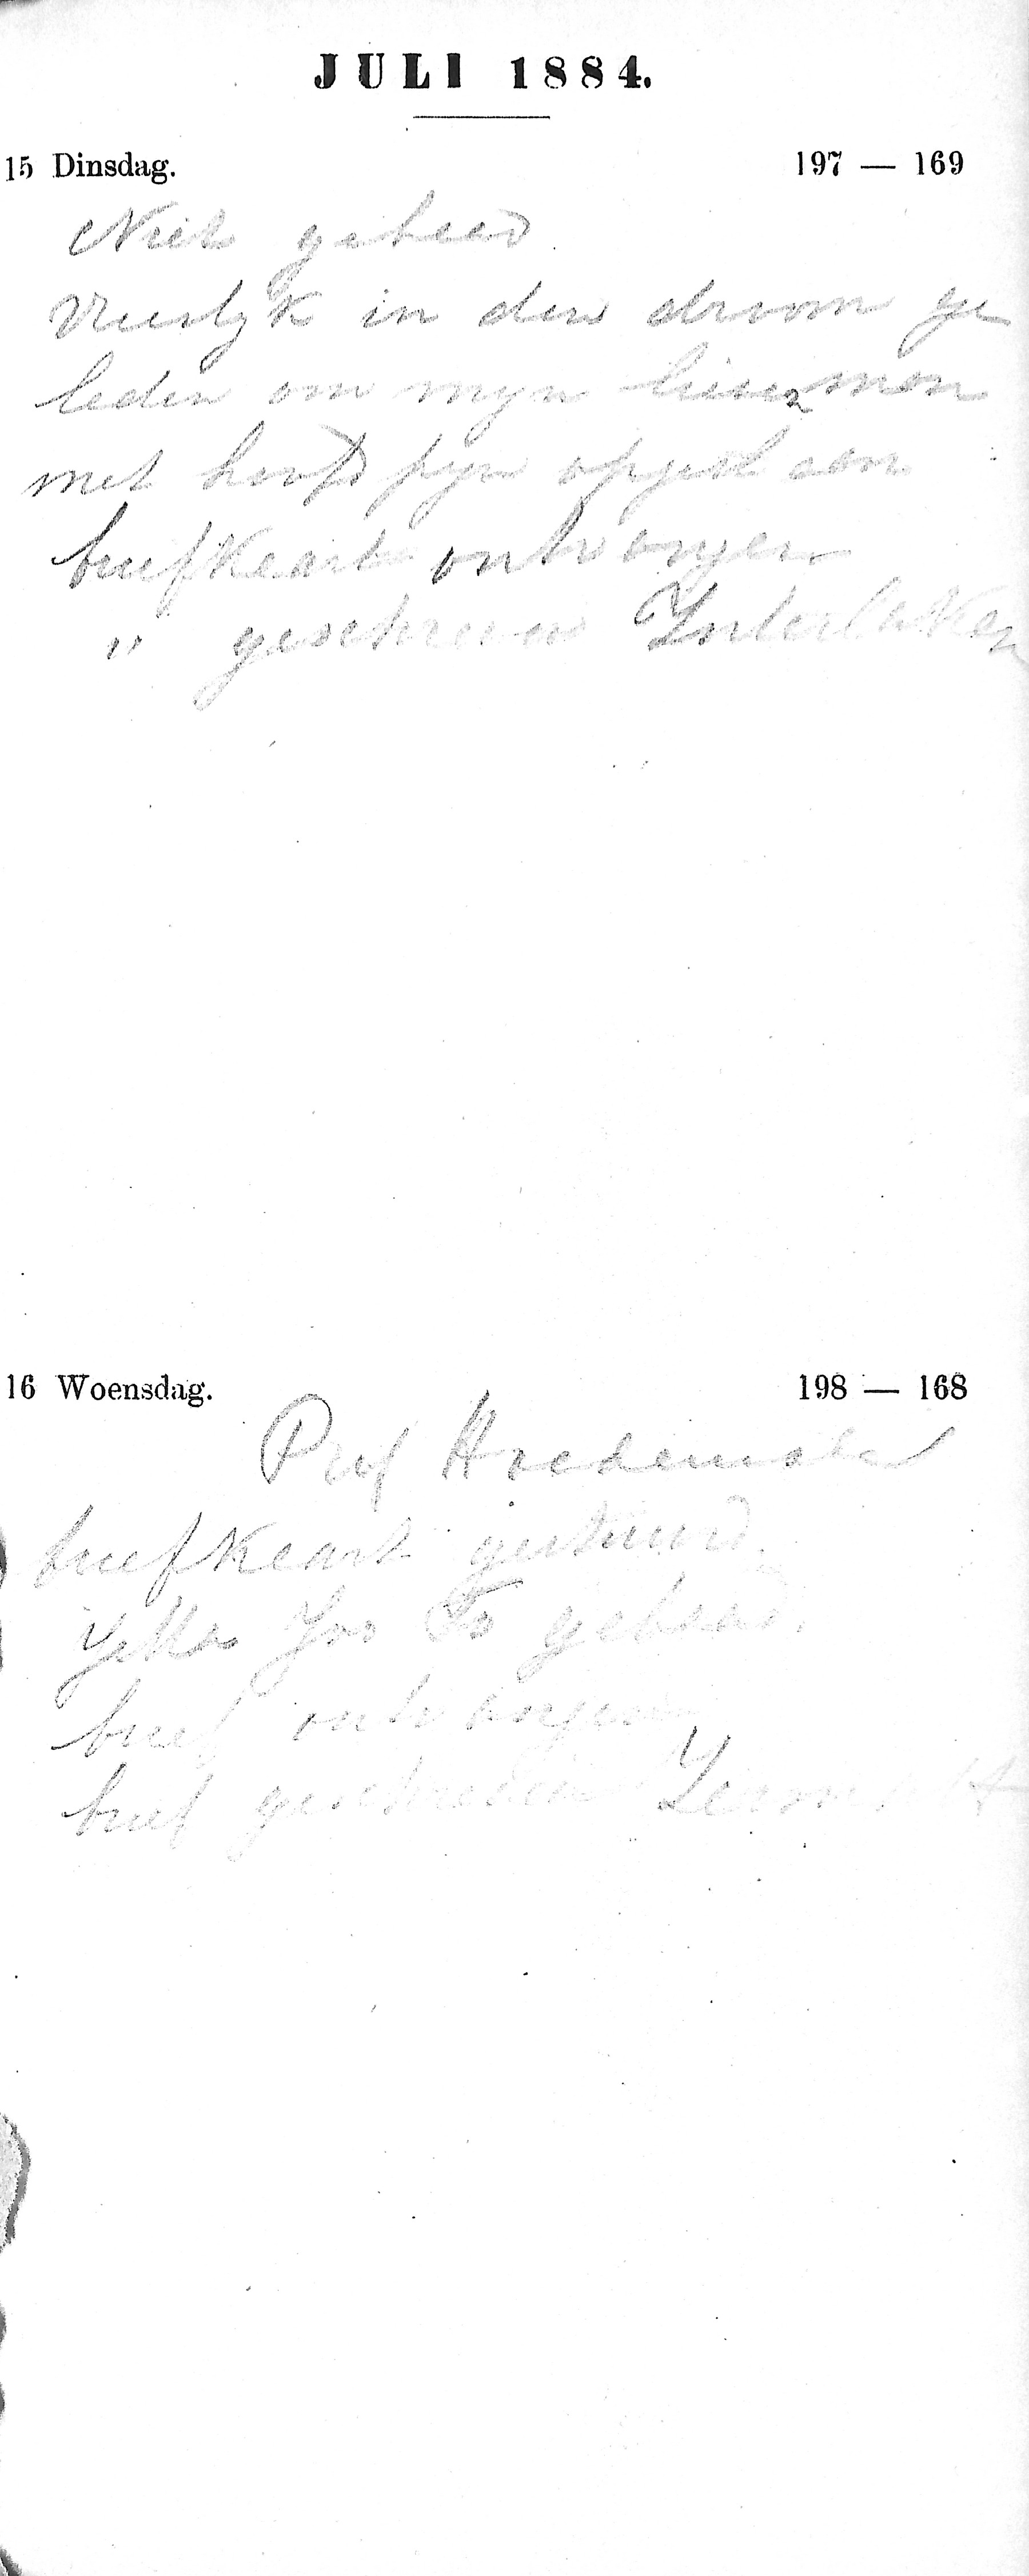 JULI 1884.
15 Dinsdag. 197 — 169
Niet gebaad
Vreeslyk in den droom ge
leden om myn lieve man
met hoofdpyn opgestaan
briefkaart ontvangen
" geschreven Interlaken
16 Woensdag. 198 — 168
Prof Hoedemaker
briefkaart gestuurd.
Jo To gebaad.
brief ontvangen
brief geschreven Zermatt